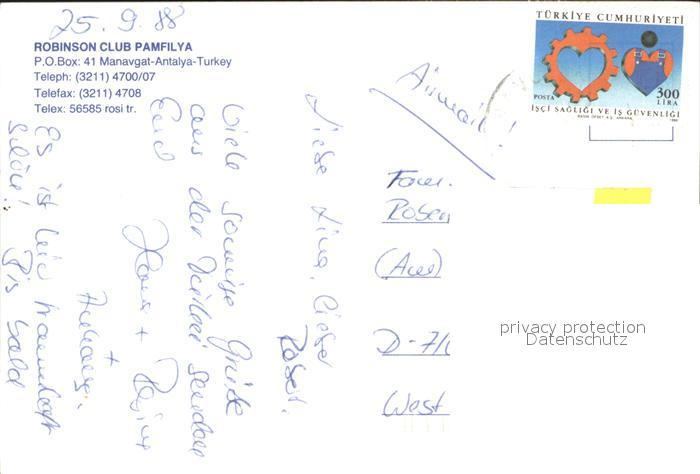 25.9.88
ROBINSON CLUB PAMFILYA
P.O.Box: 41 Manavgat-Antalya-Turkey
Teleph: (3211) 4700/07
Telefax: (3211) 4708
Telex: 56585 rosi tr.
TÜRKİYE CUMHURİYETİ
POSTA
300
LİRA
İŞÇİ SAĞLIĞI VE İŞ GÜVENLİĞI
Airmail!
Fam.
Rosen
D-71
West
Liebe Lina, lieber
Robert.
Viele sonnige Grüße
aus der Türkei senden
Euch
Hans + Regina
+
Anhang.
Es ist hier traumhaft
schön! Bis bald
privacy protection
Datenschutz